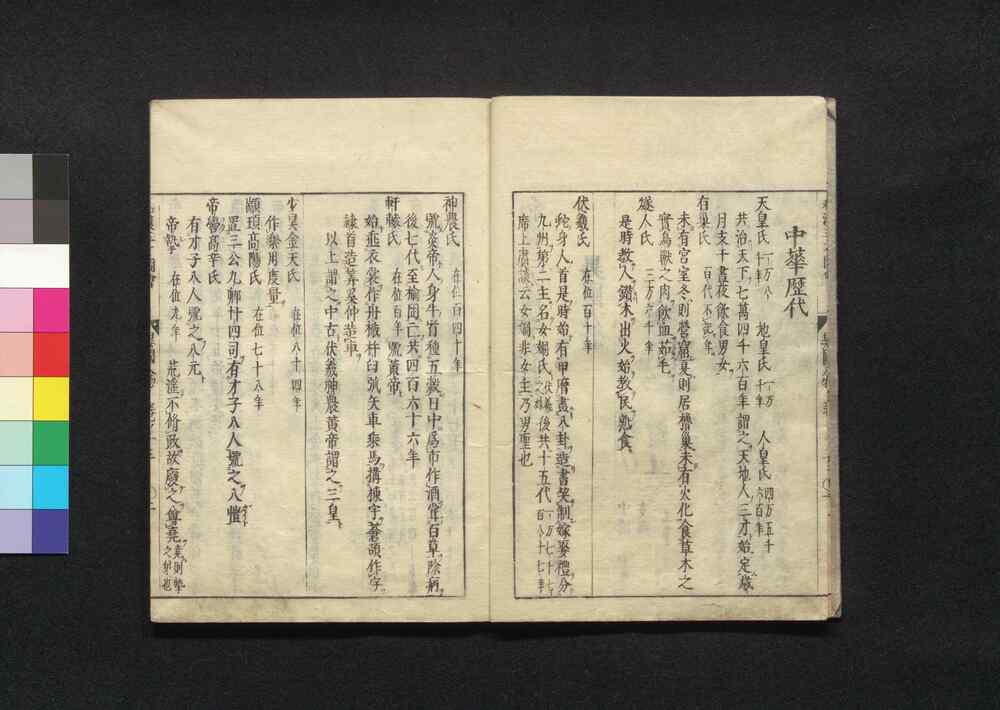 中華歴代
天皇氏 一万八千年 地皇氏 一万一千年 人皇氏 四万五千六百年
共治天下七萬四千六百年謂之天地人三才始定歳
月支干晝夜飲食男女
有巢氏 百代不記年
未有宮室冬則營窟夏則居橧巢未有火化食草木之
實鳥獸之肉飲血茹毛
燧人氏
是時教人鑽木出火始教民熟食
伏羲氏 在位百十年
蛇身人首是時始有甲曆畫八卦造書契制嫁娶禮分
九州第二主名女媧氏 伏羲之妹 後共十五代 一万七千七百八十七年
席上腐談云女媧非女主乃男聖也
神農氏 在位百四十年
號炎帝人身牛首種五穀日中爲市作酒嘗百草除病
後七代至榆罔亡共四百六十六年
軒轅氏 在位百年號黃帝
始垂衣裳作舟檝杵臼弧矢車乘馬搆棟宇蒼頡作字
隷首造筭奚仲造車
以上謂之中古伏羲神農黄帝謂之三皇
少昊金天氏 在位八十四年
作樂用度量
顓頊高陽氏 在位七十八年
置三公九卿廿四司有才子八人號之八愷
帝嚳高辛氏
有才子八人號之八元
帝摯 在位九年 荒淫不脩政故廢之尊堯 堯則摯之弟也